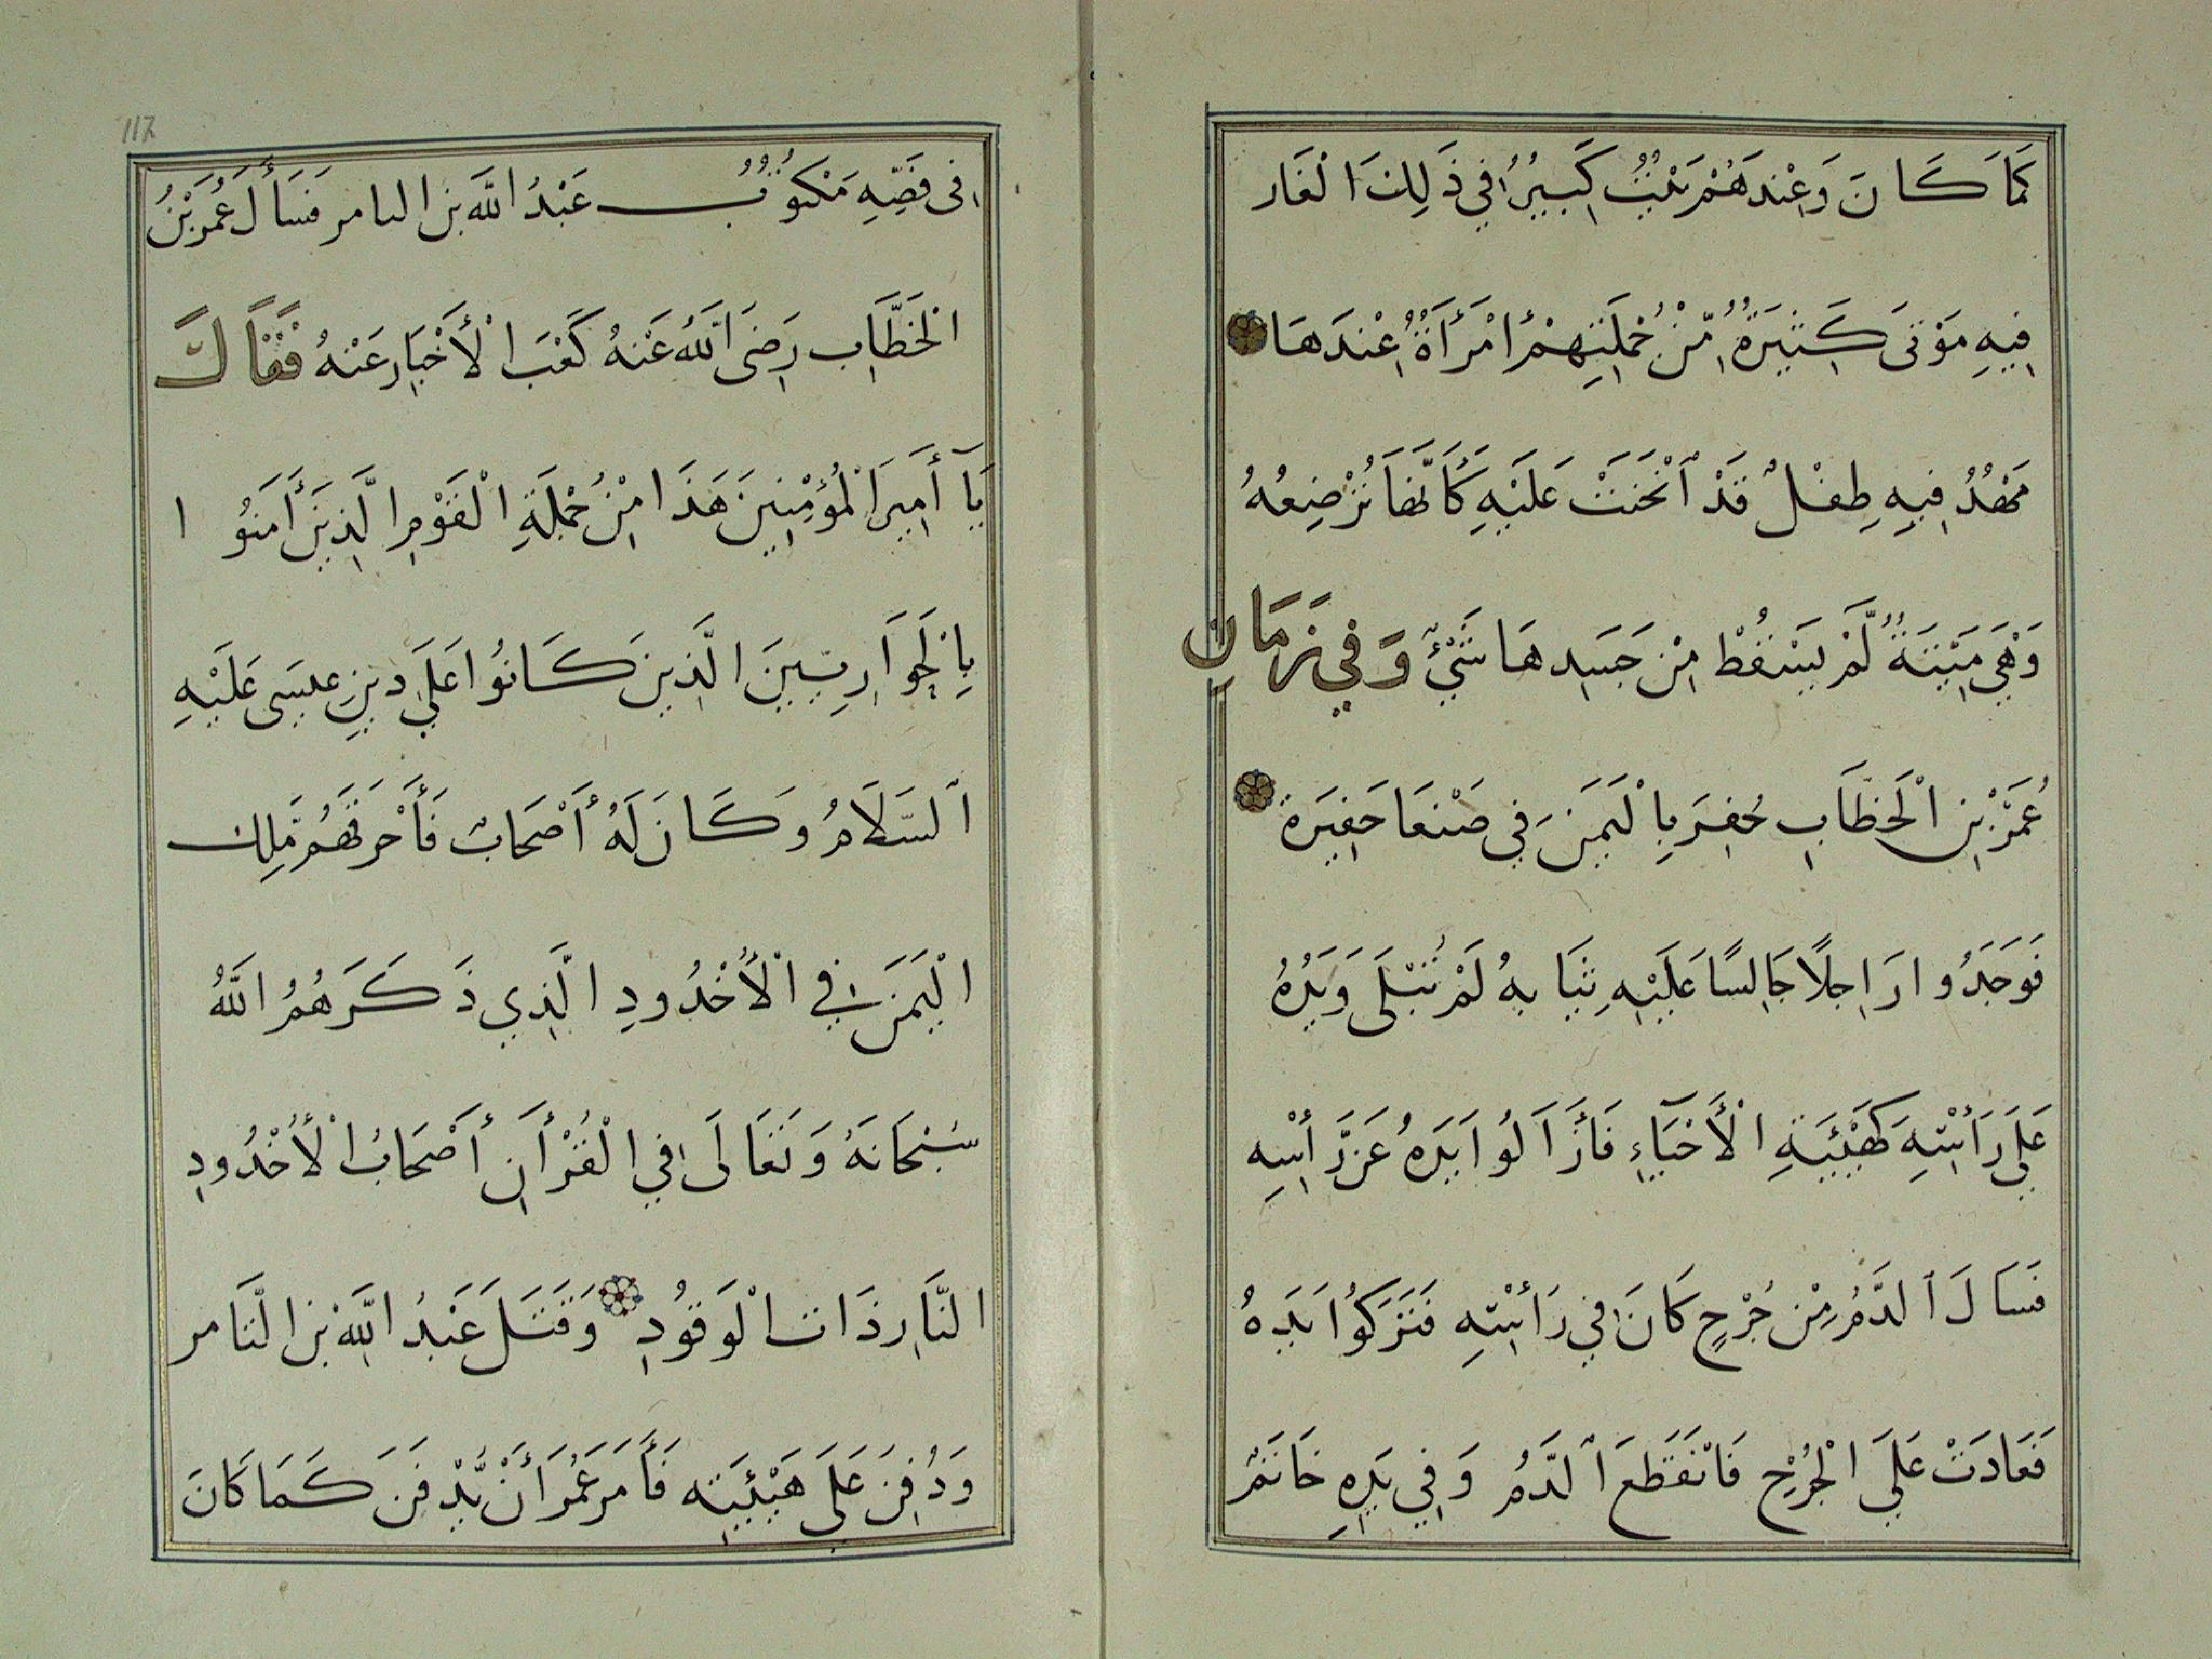 كَمَا كَانَ وَعِنْدَهُمْ بَيْتٌ كَبِيرٌ فِي ذَلِكَ الْغَار
فِيهِ مَوْتَى كَثِيرَةٌ مِّنْ جُمْلَتِهِمْ أمْرَأَةٌ عِنْدَهَا
مَهْدٌ فِيهِ طِفْلٌ قَدْ ٱنْحَنَتْ عَلَيْهِ كَأَنَّهَا تُرْضِعُهُ
وَهِيَ مَيِّتَةٌ لَّمْ يَسْقُطْ مِنْ جَسَدِهَا شَيْءٌ وَفِي زَمَانِ
عُمَرَ بْنِ الْخَطَّابِ حُفِرَ بِالْيَمَنِ فِي صَنْعَا حَفِيرَة
فَوَجَدُوا رَاجِلًا جَالِسًا عَلَيْهِ ثِيَابهُ لَمْ تُبْلَى وَيَدُهُ
عَلَى رَأْسِهِ كَهَيْئَةِ الْأَحْيَآءِ فَأَزَالُوا يَدَهُ عَن رَّأْسِهِ
فَسَالَ ٱلدَّمُ مِنْ جُرْحٍ كَانَ فِي رَأْسِهِ فَتَرَكُوا يَدِهُ
فَعَادَتْ عَلَى الْجُرْحِ فَانْقَطَعَ ٱلدَّمُ وَفِي يَدِهِ خَاتَمٌ
فِى فَصِّهِ مَكْتُوبٌ عَبْدُ اللَّه بن الىامر فَسَأَلَ عُمَرُ بْنُ
الْخَطَّابِ رَضِىَ اللَّهُ عَنْهُ كَعْبَ الْأَخْبَارِ عَنْهُ فَقَالَ
يَآ أَمِيرَ الْمُؤْمِنِينَ هَذَا مِنْ جُمْلَةِ الْقَوْمِ الَّذِينَ أَمَنُوا
بِالْحَوَارِيِّينَ الَّذِينَ كَانُوا عَلَى دِينِ عِيسَى عَلَيْهِ
ٱلسَّلَامُ وَكَانَ لَهُ أَصْحَابٌ فَأَحْرَقَهُمْ مَّلِك
الْيَمَنِ فِي الْأُخْدُودِ الَّذِي ذَكَرَهُمُ اللَّهُ
سُبْحَانَهُ وَتَعَالَى فِي الْقُرْأَنِ أَصْحَابُ الْأُخْدُودِ
النَّارِ ذَات الْوَقُودِ وَقَتَلَ عَبْدُ اللَّهِ بْن الثَّامر
وَدُفِنَ عَلَى هَيْئَتِهِ فَأَمَرَ عُمَرَ أَنْ يُّدْفَنَ كَمَا كَانَ
117